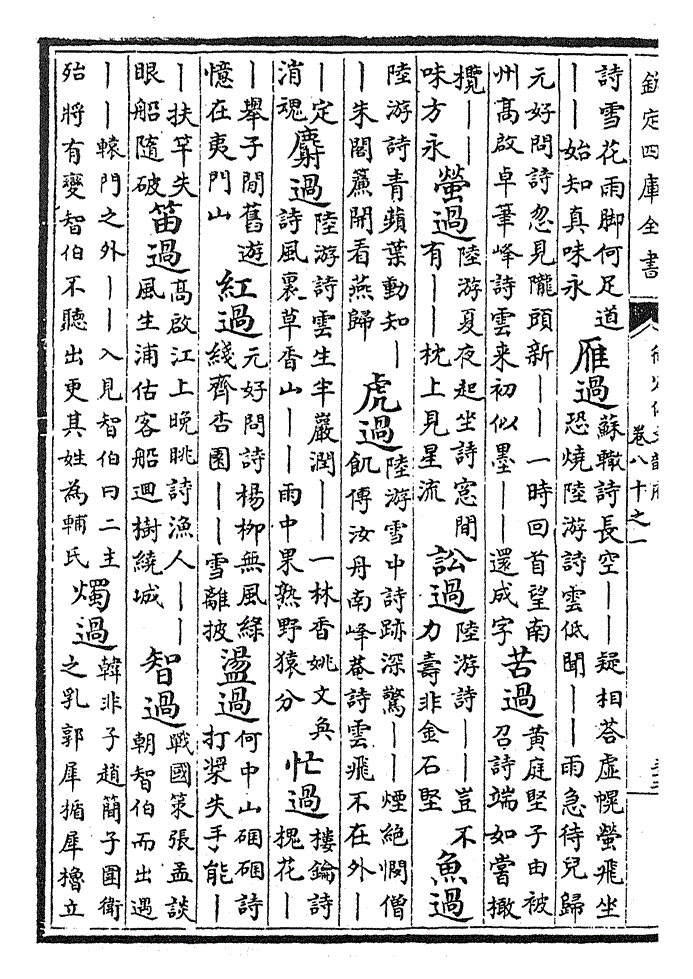 欽定四庫全書
御定佩文韻府
卷八十之一
詩雪花雨脚何足道
——始知真味永
雁過
蘇轍詩長空——疑相荅虛幌螢飛坐
恐燒陸游詩雲低聞——雨急待兒歸
元好問詩忽見隴頭新——一時回首望南
州高啟卓筆峰詩雲来初似墨——還成字
苦過
黃庭堅子由被
召詩端如嘗橄
攬——
味方永
螢過
陸游夏夜起坐詩窓間
有——枕上見星流
訟過
陸游詩——豈不
力壽非金石堅
魚過
陸游詩青蘋葉動知—
—朱閣簾開看燕歸
虎過
陸游雪中詩跡深驚——煙絶憫僧
飢傅汝舟南峰菴詩雲飛不在外—
—定
消魂
麝過
陸游詩雲生半巖潤——一林香姚文奐
詩風裏草香山——雨中果熟野猿分
忙過
樓鑰詩
槐花—
—舉子間舊遊
憶在夷門山
紅過
元好問詩楊柳無風綠
綫齊杏園——雪離披
盪過
何中山硱硱詩
打槳失手能—
—扶竿失
眼船隨破
笛過
高啟江上晚眺詩漁人——
風生浦估客船迴樹繞城
智過
戰國策張孟談
朝智伯而出遇
——轅門之外——入見智伯曰二主
殆將有變智伯不聽出更其姓為輔氏
燭過
韓非子趙簡子圍衛
之乳郭犀楯犀櫓立